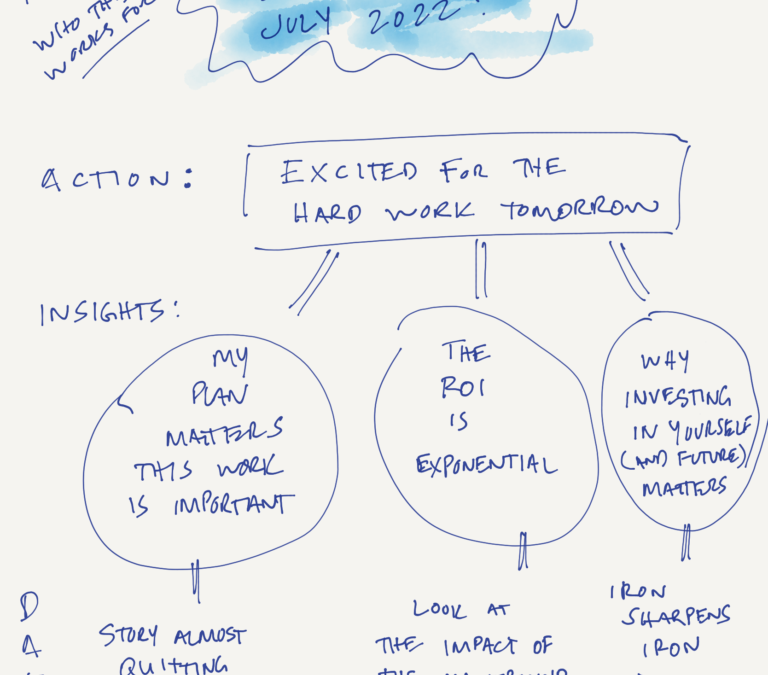 WITO TH
WORKS FOR
JULY 2022!
ACTION:
EXCITED FOR THE
HARD WORK TOMORROW
INSIGHTS:
MY
PLAN
MATTERS
THIS WORK
IS IMPORTANT
THE
ROI
IS
EXPONENTIAL
WHY
INVESTING
IN YOURSELF
(AND FUTURE)
MATTERS
D
A
STORY ALMOST
QUITTING
LOOK AT
THE IMPACT OF
IRON
SHARPENS
IRON